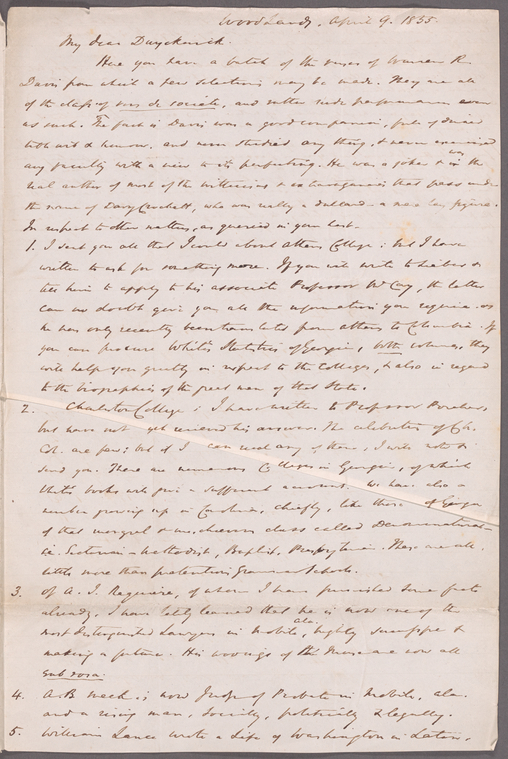 Woodlands, April 9. 1855.
My dear Duyckinck.
Here you have a batch of the verses of Warren R.
Davis from which a few selections may be made. They are all
of the class of vers de societe, and rather rude performances even
as such. The fact is Davis was a good companion, full of
both wit & humour, and never studied any thing, & never exercised
any faculty with a view to its perfecting. He was a joker & was the
real author of most of the witticisms & extravagancies that pass under
the name of Davy Crockett, who was really a dullard - a mere lay figure.
In respect to other matters, as queried in your last.
1. I sent you all that I could about Athens College; but I have
written to ask for something more. If you will write to &
tell him to apply to his associate Professor McCay, the latter
can no doubt give you all the information you require as
he was only recently been translated from Athens to Columbia. If
you can procure White's Statistics of Georgia, both volumes, they
will help you greatly in respect to the Colleges, & also in regard
to the biographies of the great men of that State.
2. Charleston College; I have written to Professor Porcher,
but have not yet received his answer. The celebrities of Ch.
Col. are few; but if I can any of them, I will
send you. There are numerous Colleges in Georgia, of which
White's books will give a sufficient account. We have also a
number growing up in Carolina, chiefly, like those of Georgia
of that mongrel & mischievous class called Denominational -
i.e. Sectarian - Methodist, Baptist, Presbyterian. These are all
little more than pretentious Grammar Schools.
3. Of A. J. Requier, of whom I have furnished some facts
already. I have lately learned that he is now one of the
most distinguished Lawyers in Mobile, Ala. highly successful &
making a fortune. His wooings of the Muse are now all
sub rosa.
4. A. B Meek; now Judge of Probate in Mobile, Ala.
and a rising man, socially, politically & legally.
5. William Lance wrote a Life of Washington in Latin,